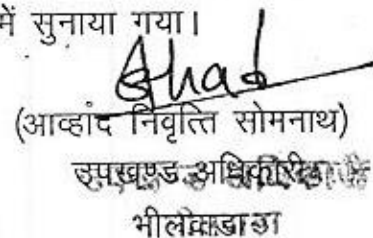 में सुनाया गया।
(आव्हांद निवृत्ति सोमनाथ)
उपखण्ड अधिकारी
भीलवाडा